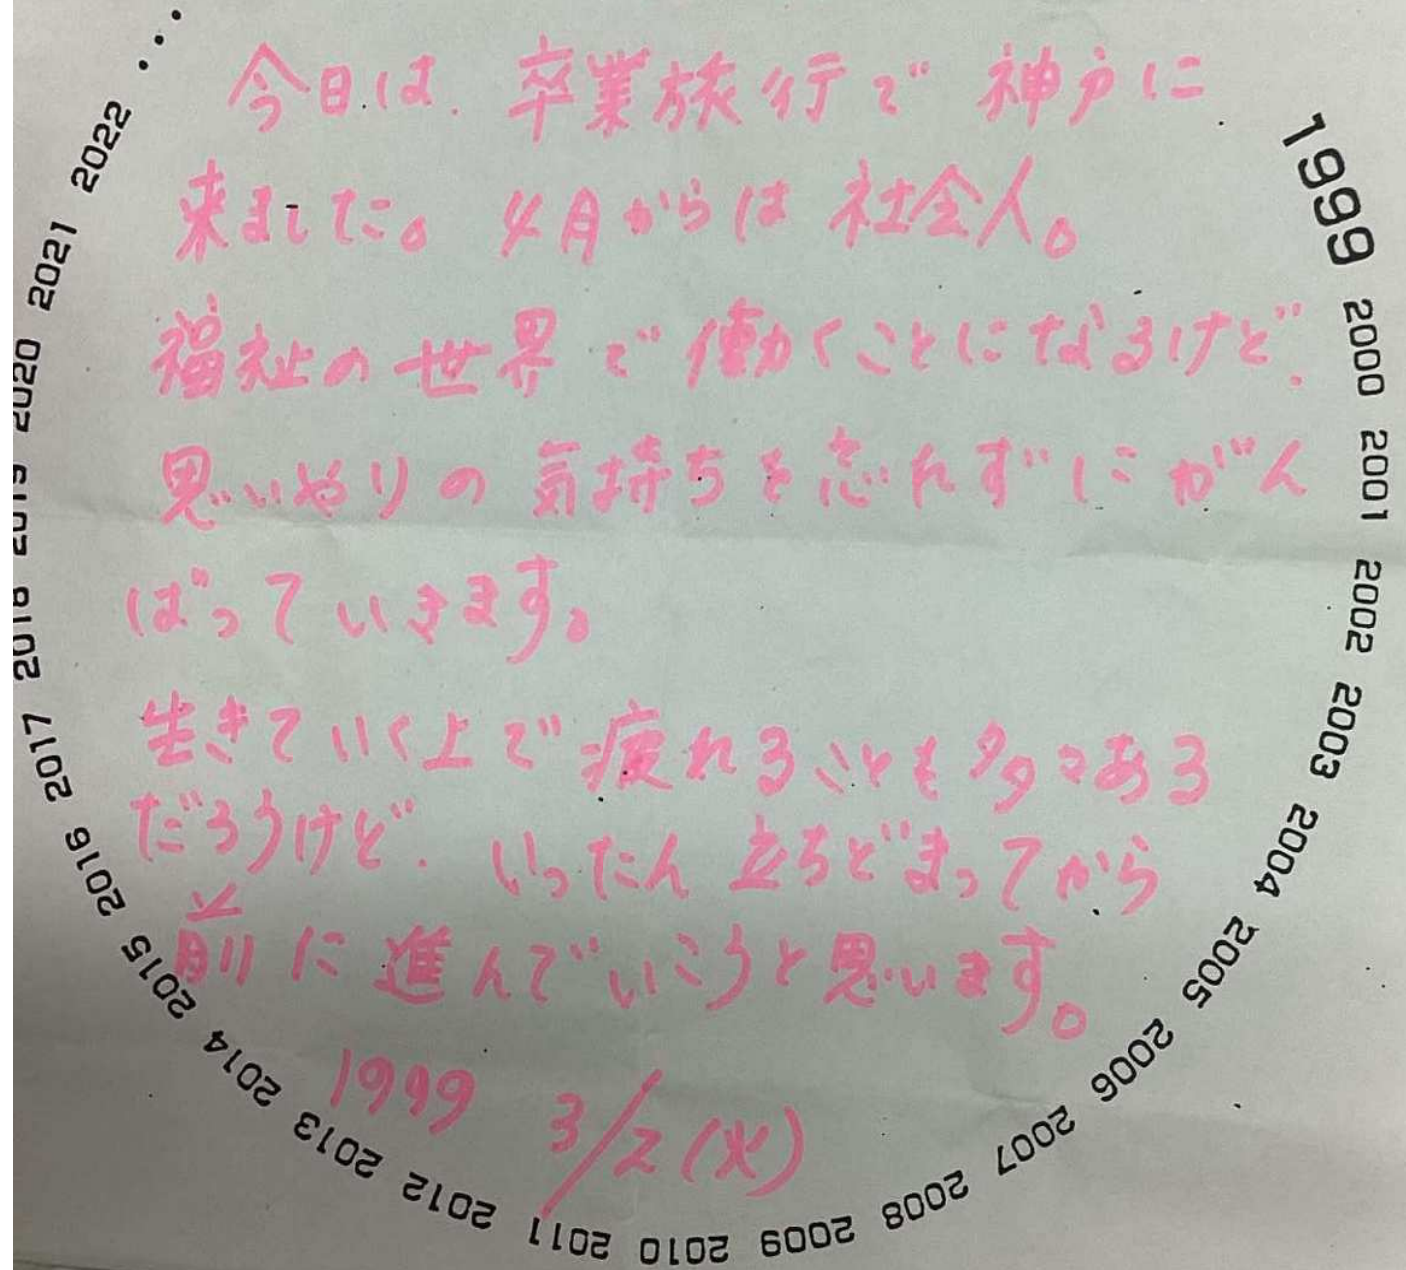 今日は、卒業旅行で神戸に
来ました。4月からは社会人。
福祉の世界で働くことになるけど、
思いやりの気持ちを忘れずにがん
ばっていきます。
生きていく上で疲れることも多々ある
だろうけど、いったん立ちどまってから
前に進んでいこうと思います。
1999 3/2(火)
1999 2000 2001 2002 2003 2004 2005 2006 2007 2008 2009 2010 2011 2012 2013 2014 2015 2016 2017 2018 2019 2020 2021 2022 ...